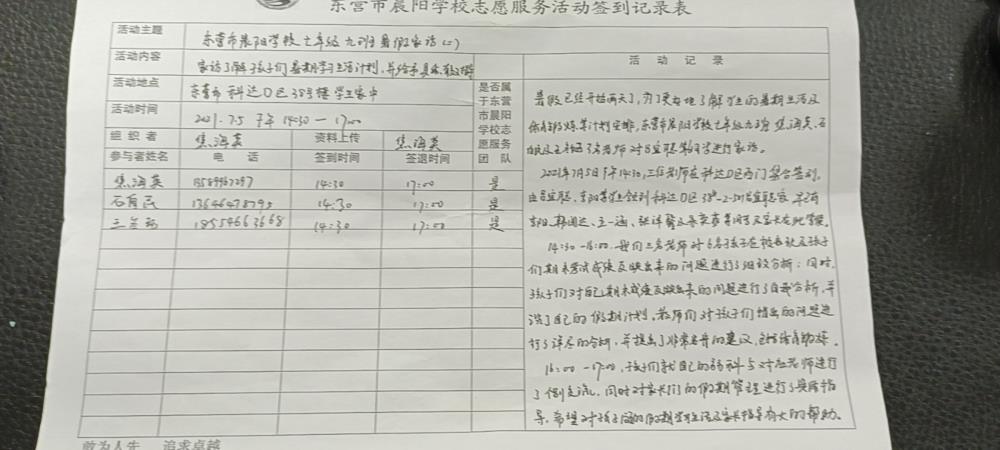 东营市晨阳学校志愿服务活动签到记录表
活动主题 东营市晨阳学校七年级九班暑假家访(二)
活动内容 家访了解孩子们暑期学习生活计划,并给予具体
活动地点 东营市科达D区38号楼学生家中
活动时间 2021.7.5 下午 14:30 — 17:00
组织者 焦海英 资料上传 焦海英
是否属于东营市晨阳学校志愿服务团队
参与者姓名 电话 签到时间 签退时间
焦海英 14:30 17:00 是
石有民 13646478795 14:30 17:00 是
18554663668 14:30 17:00 是
活动记录
暑假已经开始两天了,为了更好地了解学生的暑期生活及
体育锻炼等计划安排,东营市晨阳学校七年级九班 焦海英、石
有民及 3名老师对 等同学进行家访。
2021年7月5日下午14:30,三位老师在科达D区西门集合签到,
由 等学生领到科达D区38#-2-501
14:30-16:00,我们三名老师对6名孩子在校表现及孩子
们期末考试成绩反映出来的问题进行了细致分析;同时,
孩子们对自己期末成绩反映出来的问题进行了自我分析,并
谈了自己的假期计划,老师们对孩子们提出的问题进
行了详尽的分析,并提出了非常宝贵的建议,包括体育锻炼.
16:00-17:00,孩子们就自己的弱科与对应老师进行
了个别交流,同时对家长们的假期管理进行了具体指
导,希望对孩子们的假期学习生活及家长指导有大的帮助。
敢为人先 追求卓越